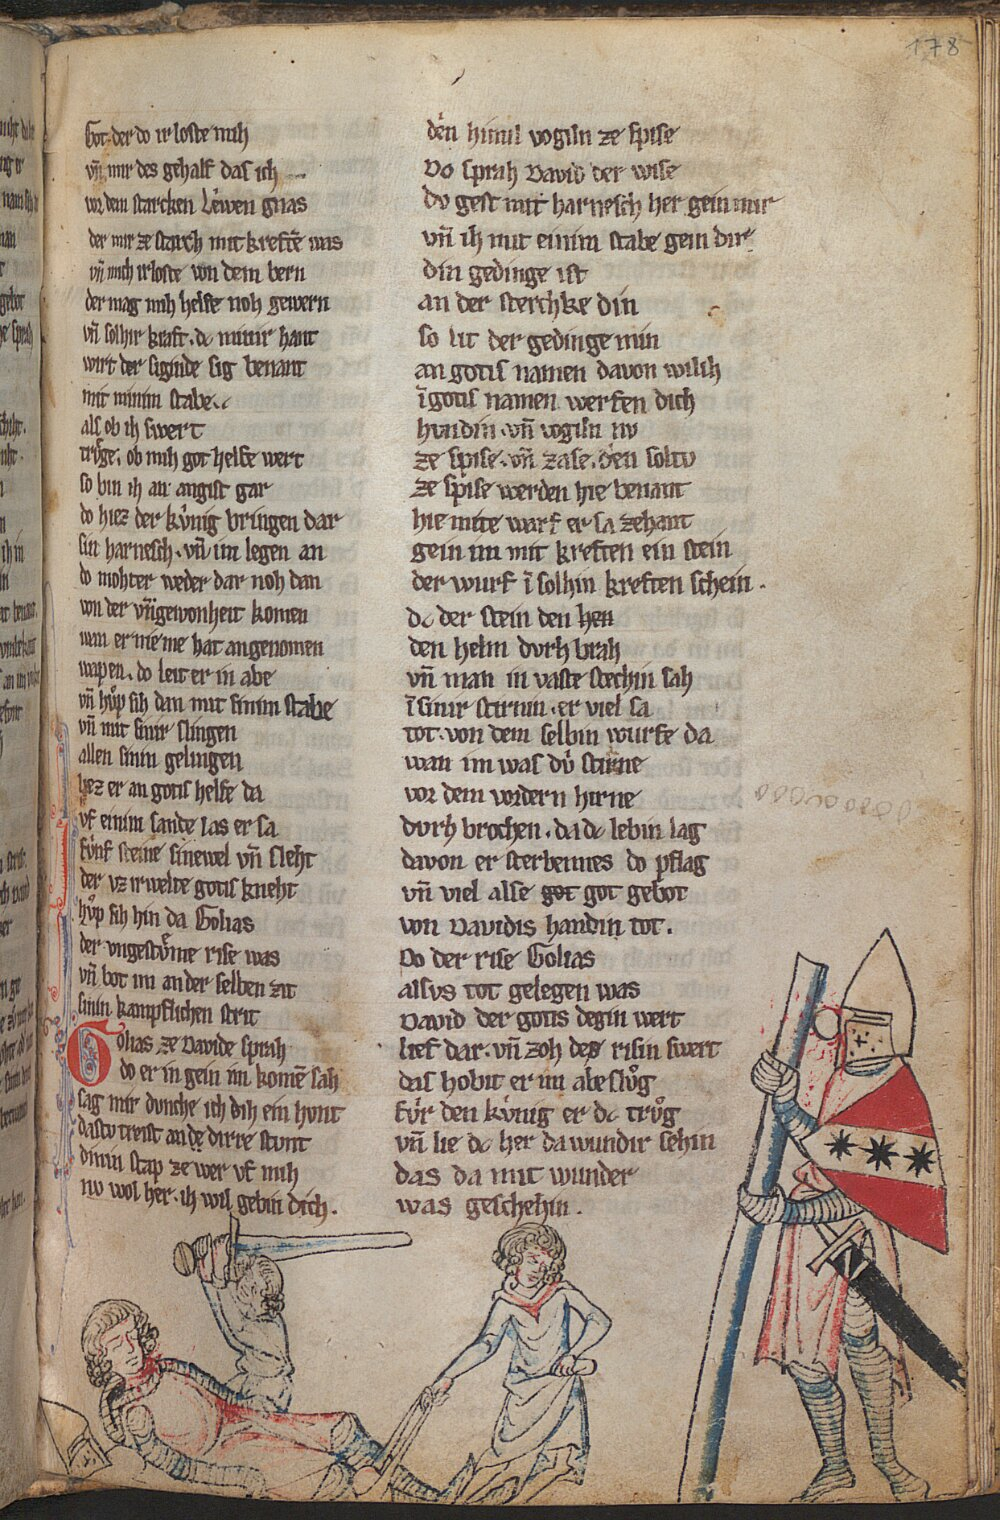 178
Got der do ir loste mih
vn̄ mir des gehalf das ich
vor dem starcken Lewen gnas
der mir ze starch mit krefte was
vn̄ mich irloste von dem bern
der mag mih helfe noh gewern
vn̄ solhir kraft. dc minir hant
wirt der siginde sig benant
mit minim stabe.
als ob ih swert
trůge. ob mih got helfe wert
so bin ih an angist gar
do hiez der kv́nig bringen dar
sin harnesch. vn̄ im legen an
do mohter weder dar noh dan
von der vn̄gewonheit komen
wan er nie me hat angenomen
wapen. do leit er in abe
vn̄ hůp sih dan mit sinim stabe
vn̄ mit sinir slingen
allen sinin gelingen
liez er an gotis helfe da
vf einim sande las er sa
fv́nf steine sinewel vn̄ sleht
der vz irwelte gotis kneht
hůp sih hin da Golias
der vngestv̊me rise was
vn̄ bot im an der selben zit
sinin kampflichen strit
Golias ze Davide sprah
do er in gein im komē sah
sag mir dvnche ich dih ein hvnt
dastv treist an de dirre stvnt
dinin stap ze wer vf mih
nv wol her. ih wil gebin dich.
den himil vogiln ze spise
Do sprah David der wise
dv gest mit harnesch her gein mir
vn̄ ih mit einim stabe gein dir
din gedinge ist
an der sterchke din
so lit der gedinge min
an gotis namen davon wilih
ī gotis namen werfen dich
hvndin. vn̄ vogiln nv
ze spise. vn̄ zase. den soltv
ze spise werden hie benant
hie mite warf er sa zehant
gein im mit kreften ein stein
der wurf ī solhin kreften schein.
dc der stein den hen
den helm dvrh brah
vn̄ man in vaste stechin sah
ī sinir stirnin. er viel sa
tot. von dem selbin wurfe da
wan im was dv́ stirne
vor dem vordern hirne
dvrh brochen. da dc lebin lag
davon er sterbennes do pflag
vn̄ viel alse got got gebot
von Davidis handin tot.
Do der rise Golias
alsvs tot gelegen was
David der gotis degin wert
lief dar. vn̄ zoh des risin swert
das hobit er im abe slůg
fv́r den kv́nig er dc trůg
vn̄ lie dc her da wundir sehin
das da mit wunder
was geschehin.